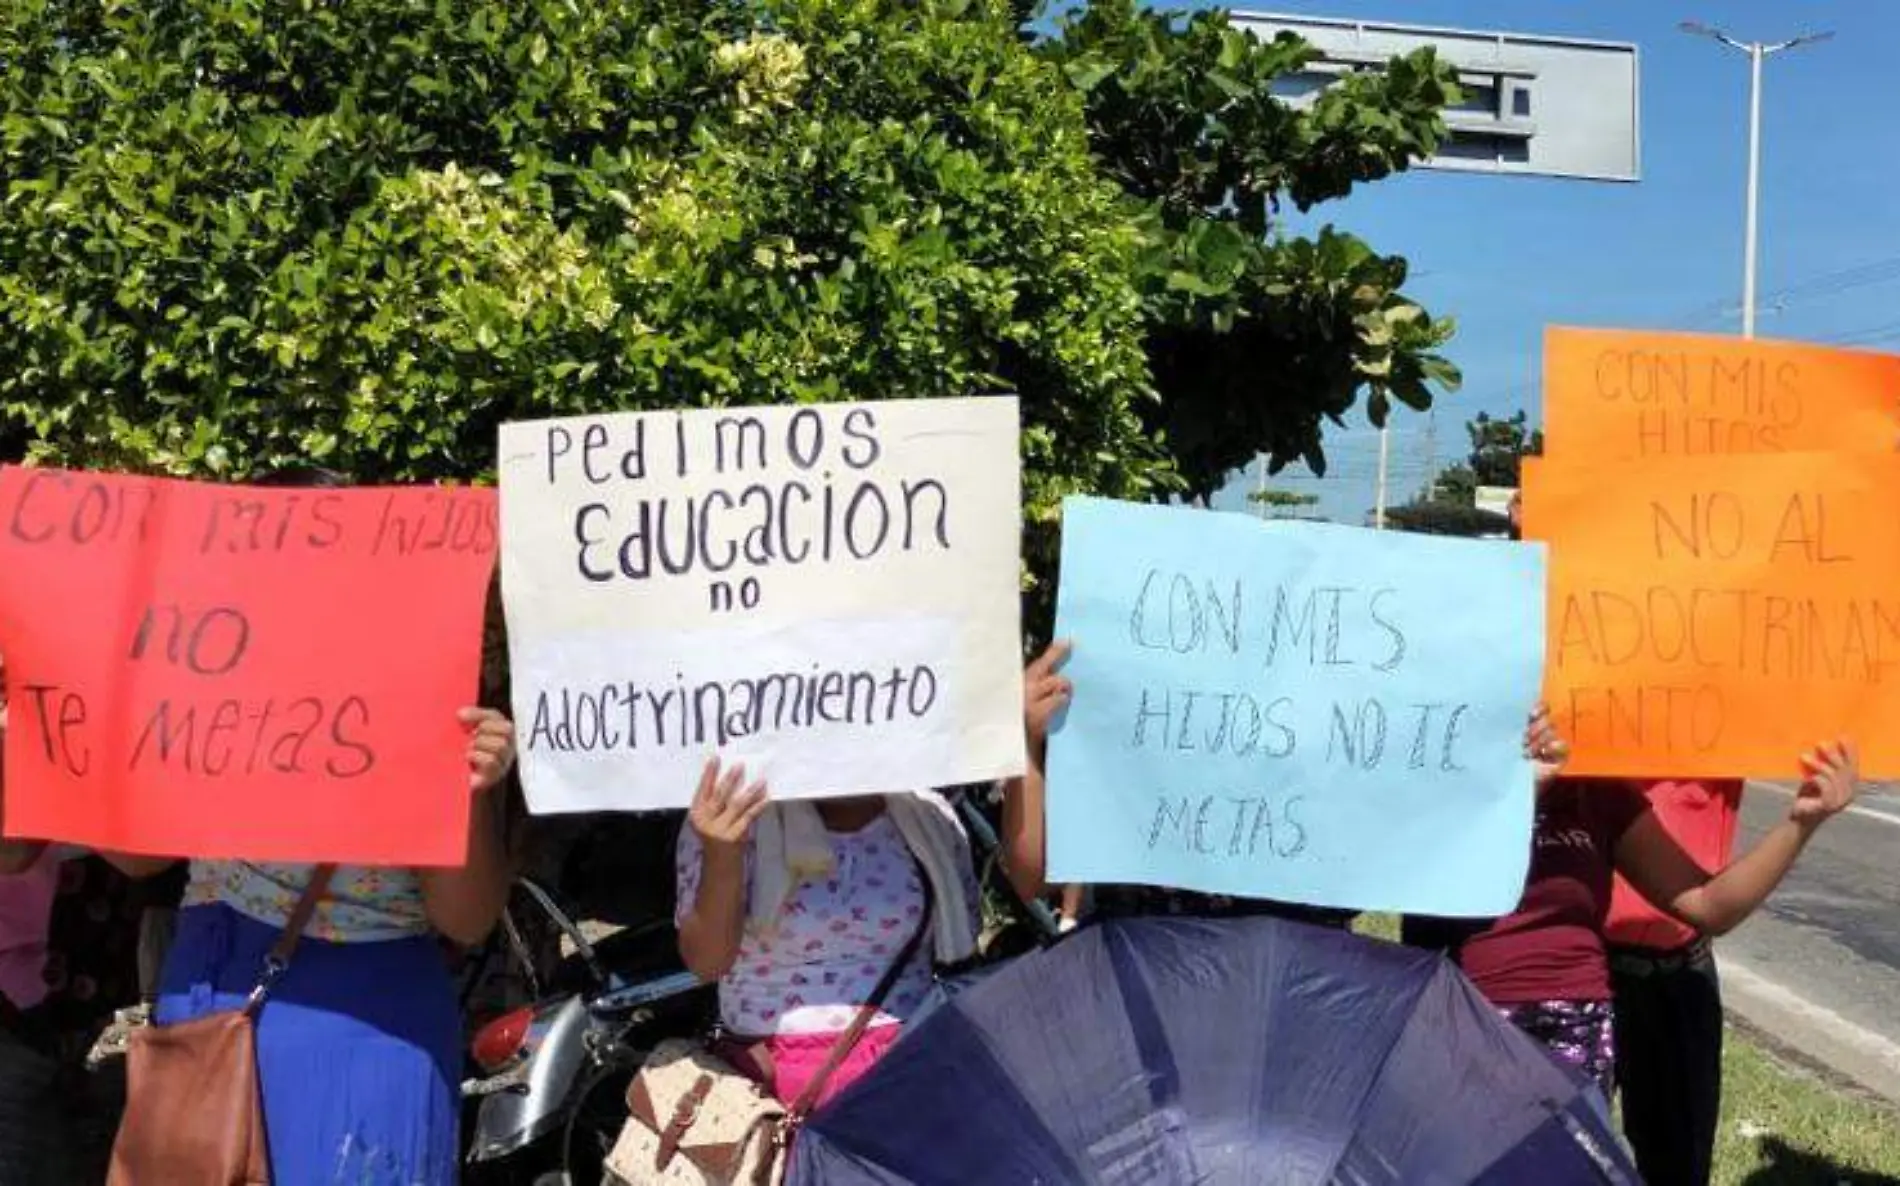 Con mis hijos
no
Te metas
Pedimos
Educacion
no
Adoctrinamiento
CON MIS
HIJOS NO TE
METAS...
CON MIS
HITOS
NO AL
ADOCTRINAMI
ENTO